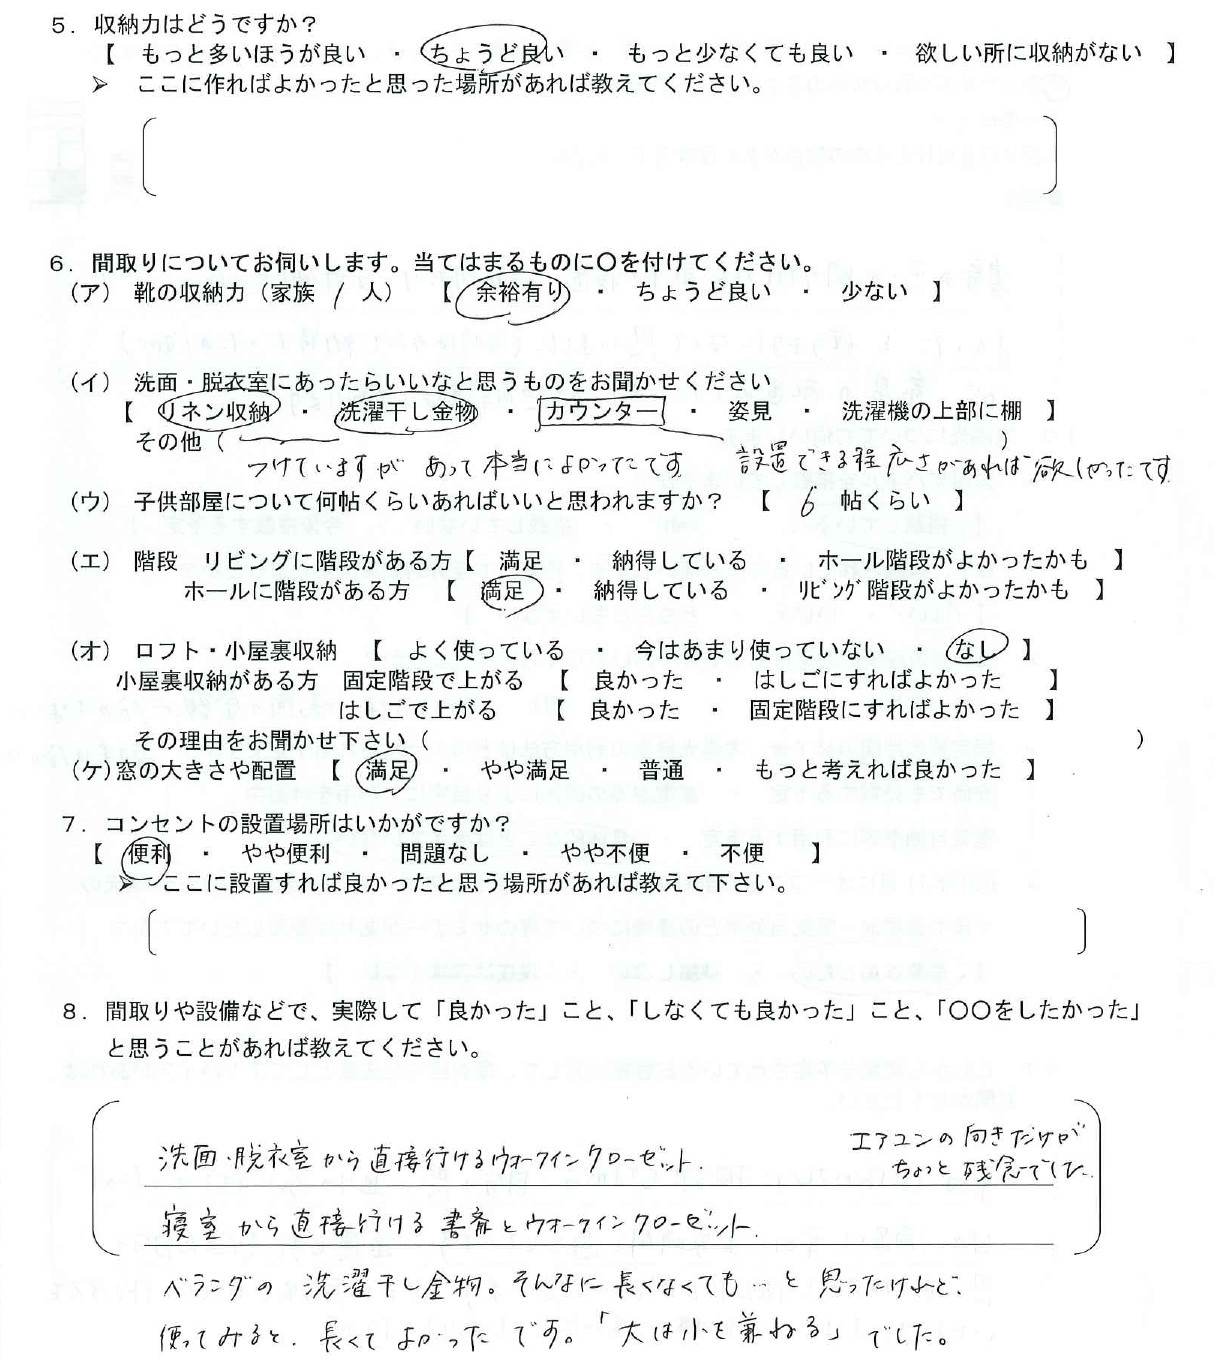 ５．収納力はどうですか？
【　もっと多いほうが良い　・　ちょうど良い　・　もっと少なくても良い　・　欲しい所に収納がない　】
➢　ここに作ればよかったと思った場所があれば教えてください。
６．間取りについてお伺いします。当てはまるものに〇を付けてください。
（ア）　靴の収納力（家族　1　人）　【　余裕有り　・　ちょうど良い　・　少ない　】
（イ）　洗面・脱衣室にあったらいいなと思うものをお聞かせください
【　リネン収納　・　洗濯干し金物　・　カウンター　・　姿見　・　洗濯機の上部に棚　】
その他（　　　　　）
つけていますが　あって本当によかったです　　設置できる程　広さがあれば欲しかったです
（ウ）　子供部屋について何帖くらいあればいいと思われますか？　【　6　帖くらい　】
（エ）　階段　リビングに階段がある方【　満足　・　納得している　・　ホール階段がよかったかも　】
ホールに階段がある方　【　満足　・　納得している　・　ﾘﾋﾞﾝｸﾞ階段がよかったかも　】
（オ）　ロフト・小屋裏収納　【　よく使っている　・　今はあまり使っていない　・　なし　】
小屋裏収納がある方　固定階段で上がる　【　良かった　・　はしごにすればよかった　】
はしごで上がる　【　良かった　・　固定階段にすればよかった　】
その理由をお聞かせ下さい（　　　　　）
（ケ）窓の大きさや配置　【　満足　・　やや満足　・　普通　・　もっと考えれば良かった　】
７．コンセントの設置場所はいかがですか？
【　便利　・　やや便利　・　問題なし　・　やや不便　・　不便　】
➢　ここに設置すれば良かったと思う場所があれば教えて下さい。
８．間取りや設備などで、実際して「良かった」こと、「しなくても良かった」こと、「〇〇をしたかった」
と思うことがあれば教えてください。
エアコンの向きだけが
ちょっと残念でした。
洗面・脱衣室から直接行けるウォークインクローゼット．
寝室から直接行ける書斎とウォークインクローゼット．
ベランダの　洗濯干し金物。そんなに長くなくても…と思ったけれど、
使ってみると、長くてよかったです。「大は小を兼ねる」でした。